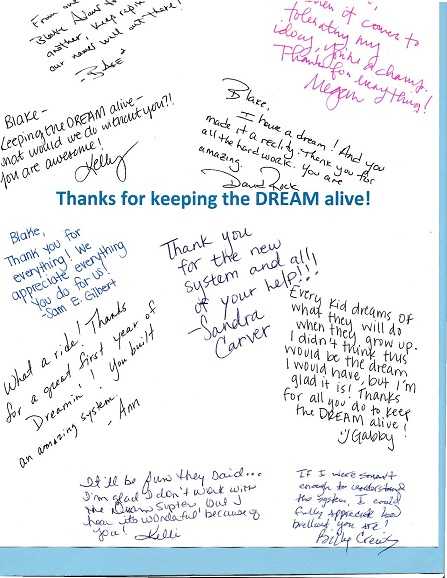 From one
Blake Adams to
another, keep
our names will out there!
- Blake
it comes to
tolerating my
ideas, you're a champ.
Thanks for everything!
Megan
Blake-
Keeping the DREAM alive-
what would we do without you?!
You are awesome!
Kelly
Blake,
I have a dream! And you
made it a reality. Thank you for
all the hard work. You are
amazing.
David Rock
Thanks for keeping the DREAM alive!
Blake,
Thank you for
everything! We
appreciate everything
you do for us!
-Sam E. Gilbert
Thank you
for the new
system and all
of your help!!!
-Sandra
Carver
What a ride! Thanks
for a great first year of
Dreamin'! You built
an amazing system!
- Ann
Every kid dreams of
what they will do
when they grow up.
I didn't think this
would be the dream
I would have, but I'm
glad it is! Thanks
for all you do to keep
the DREAM alive!
Gabby
It'll be fun they said...
I'm glad I don't work with
the Dream but I
hear it's wonderful because of
you! Kelli
If I were smart
enough to understand
the system I could
fully appreciate how
brilliant you are!
Billy